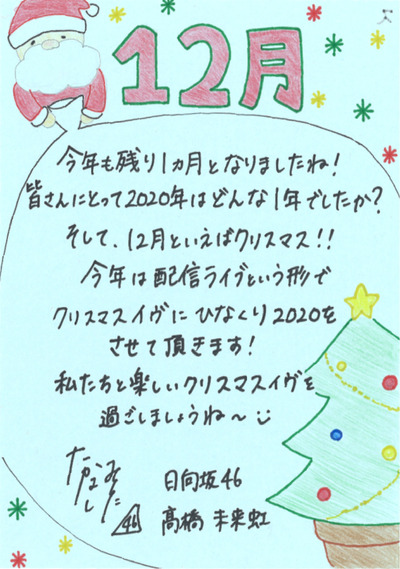 12月
今年も残り1ヵ月となりましたね!
皆さんにとって2020年はどんな1年でしたか?
そして、12月といえばクリスマス!!
今年は配信ライブという形で
クリスマスイヴにひなくり2020を
させて頂きます!
私たちと楽しいクリスマスイヴを
過ごしましょうね〜
日向坂46
髙橋 未来虹
46